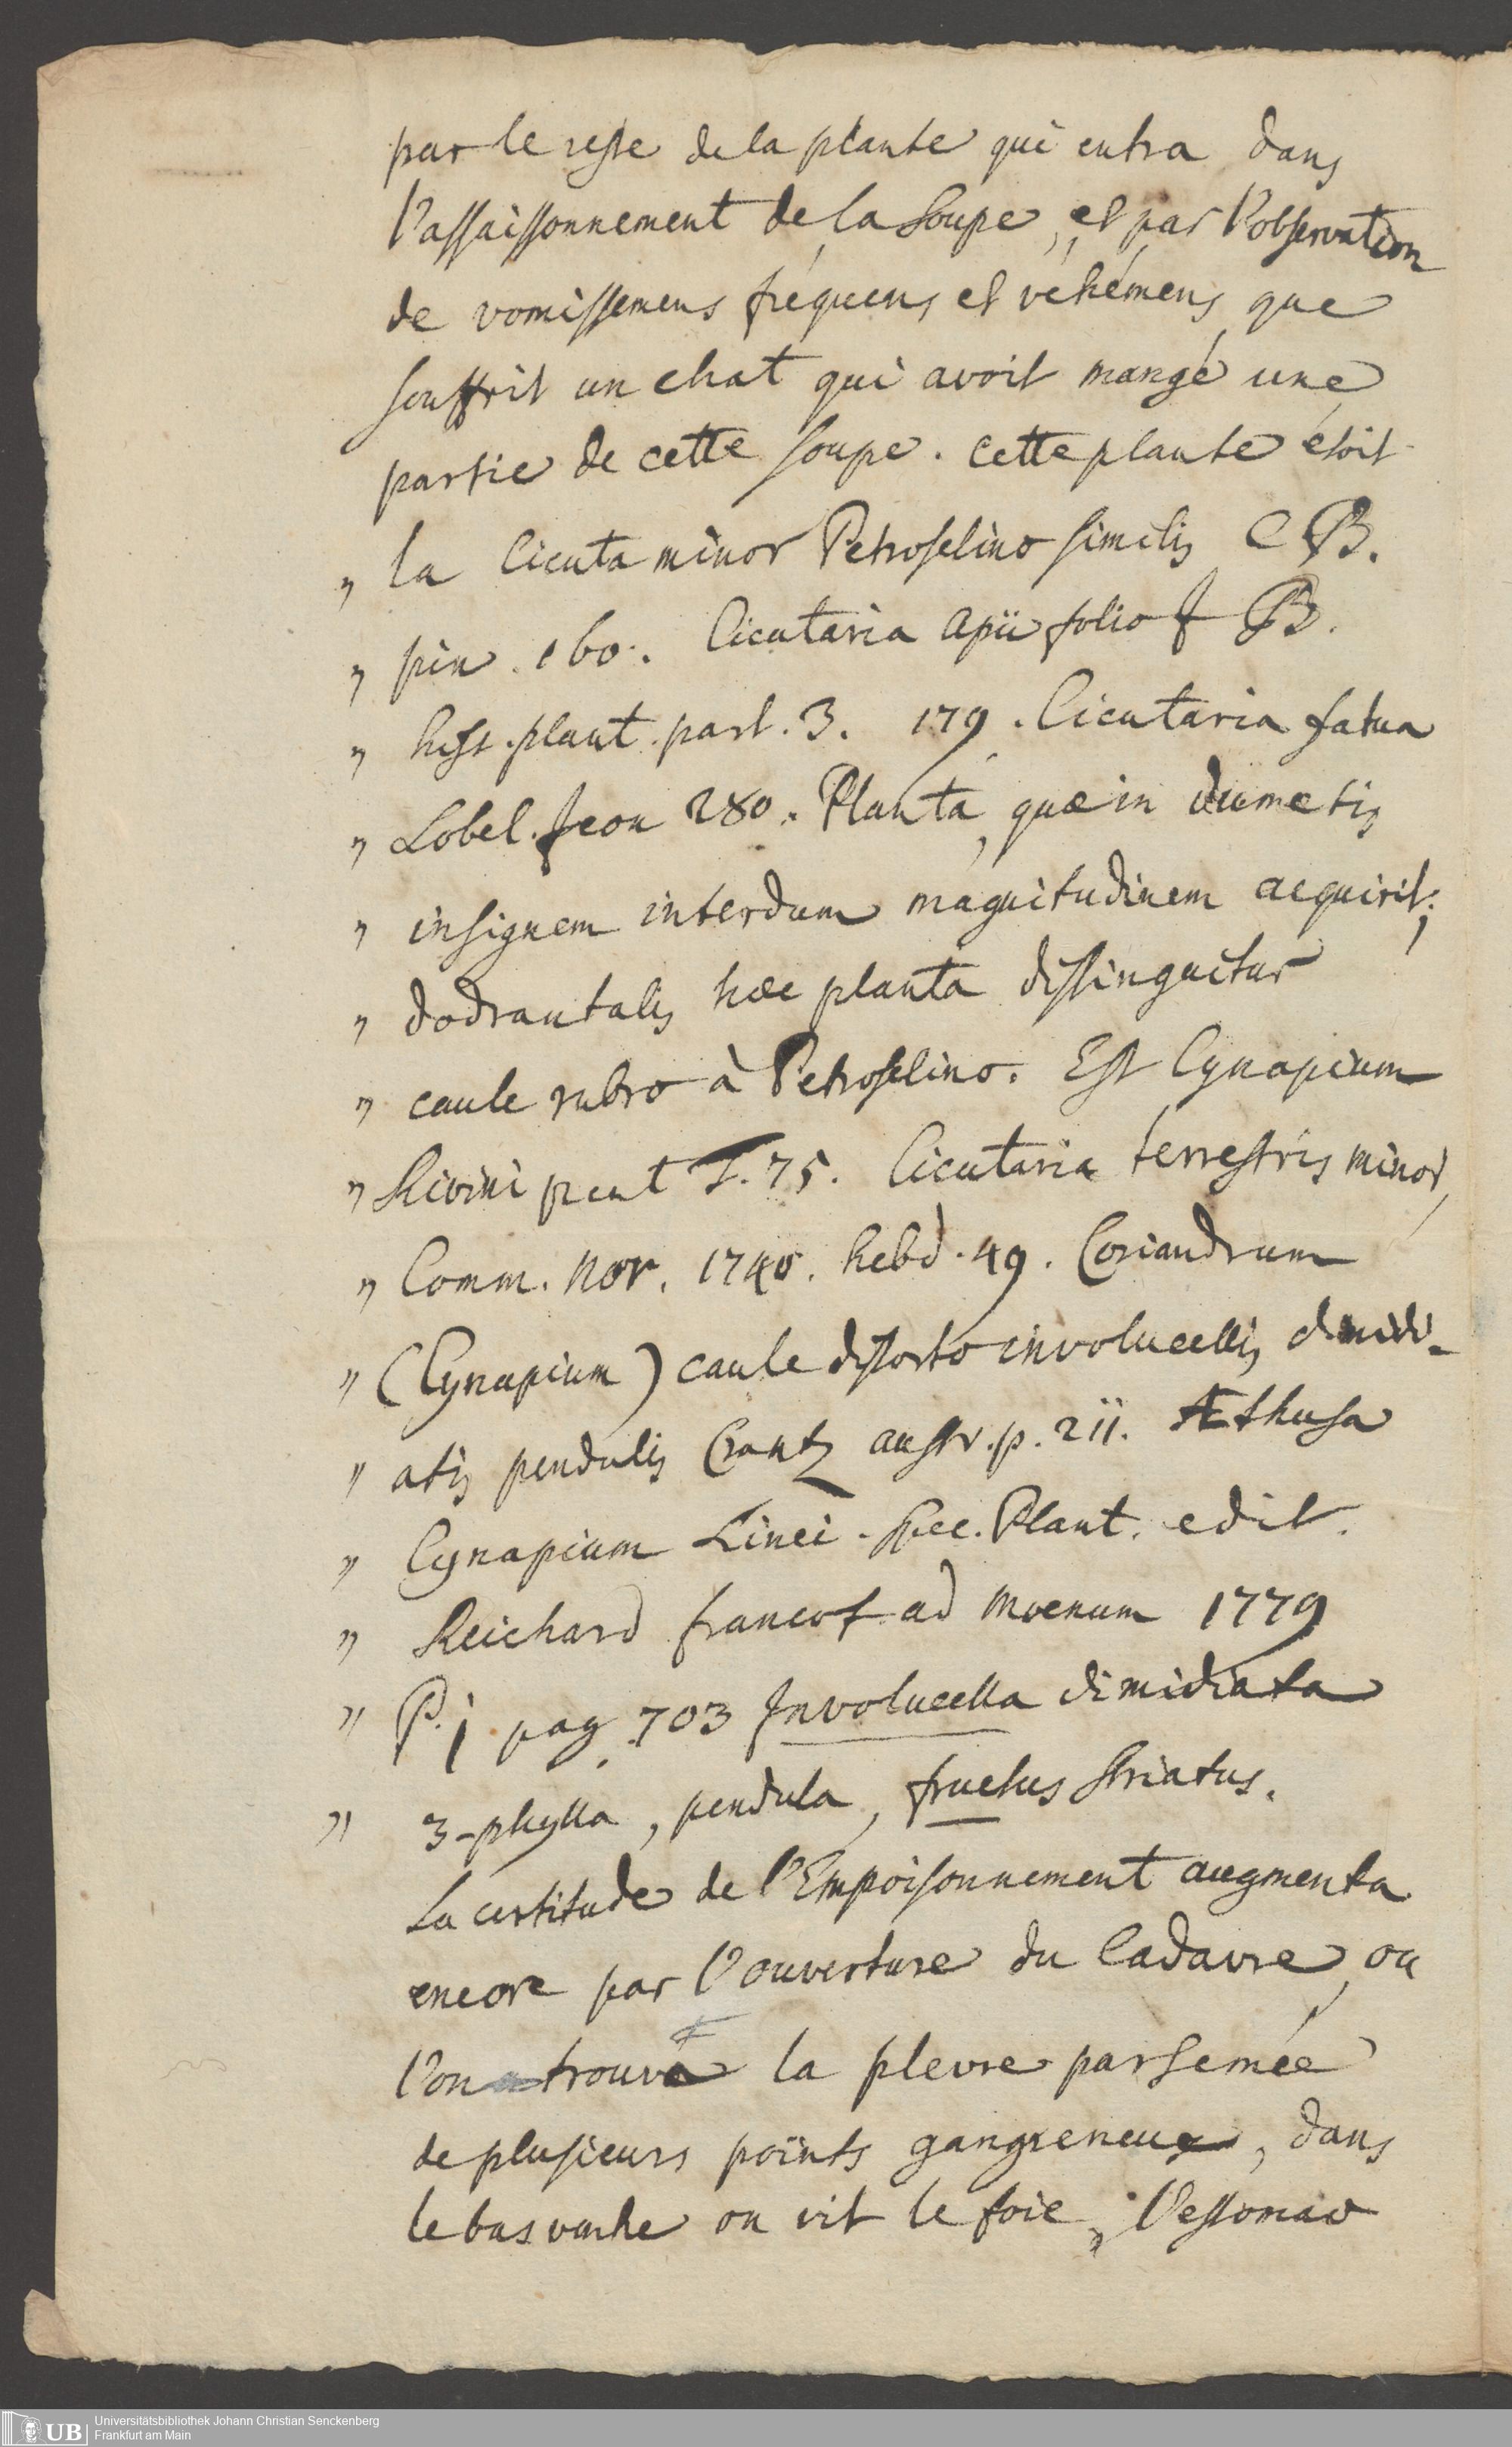 par le reste de la plante qui entra dans
l'assaissonnement de la soupe, et par l'observation
de vomissemens fréquens et véhémens, que
souffrit un chat qui avoit mangé une
partie de cette soupe. cette plante étoit
" la Cicuta minor Petroselino similis C B.
" pin. 160. Cicutaria apii folio J B.
" hist. plant. part. 3. 179. Cicutaria fatua
" Lobel. Icon 280. Planta, quæ in dumetis
" insignem interdum magnitudinem acquirit;
" dodrantalis hæc planta distinguitur
" caule rubro à Petroselino. Est Cynapium
" Rivini pent T. 75. Cicutaria terrestris minor,
" Comm. nor. 1740. hebd. 49. Coriandrum
" (Cynapium) caule distorto involucellis dimidi-
" atis pendulis Crantz austr. p. 211. Æthusa
" Cynapium Linei. Spec. Plant. edit.
" Reichard francof ad moenum 1779
" P. j pag. 703 Involucella dimidiata
" 3-phylla, pendula, fructus striatus.
La certitude de l'Empoisonnement augmenta
encore par l'ouverture du Cadavre, ou
l'on trouva la plevre parsemée
de plusieurs points gangreneux, dans
le bas ventre on vit le foie, l'estomac
UB
Universitätsbibliothek Johann Christian Senckenberg
Frankfurt am Main